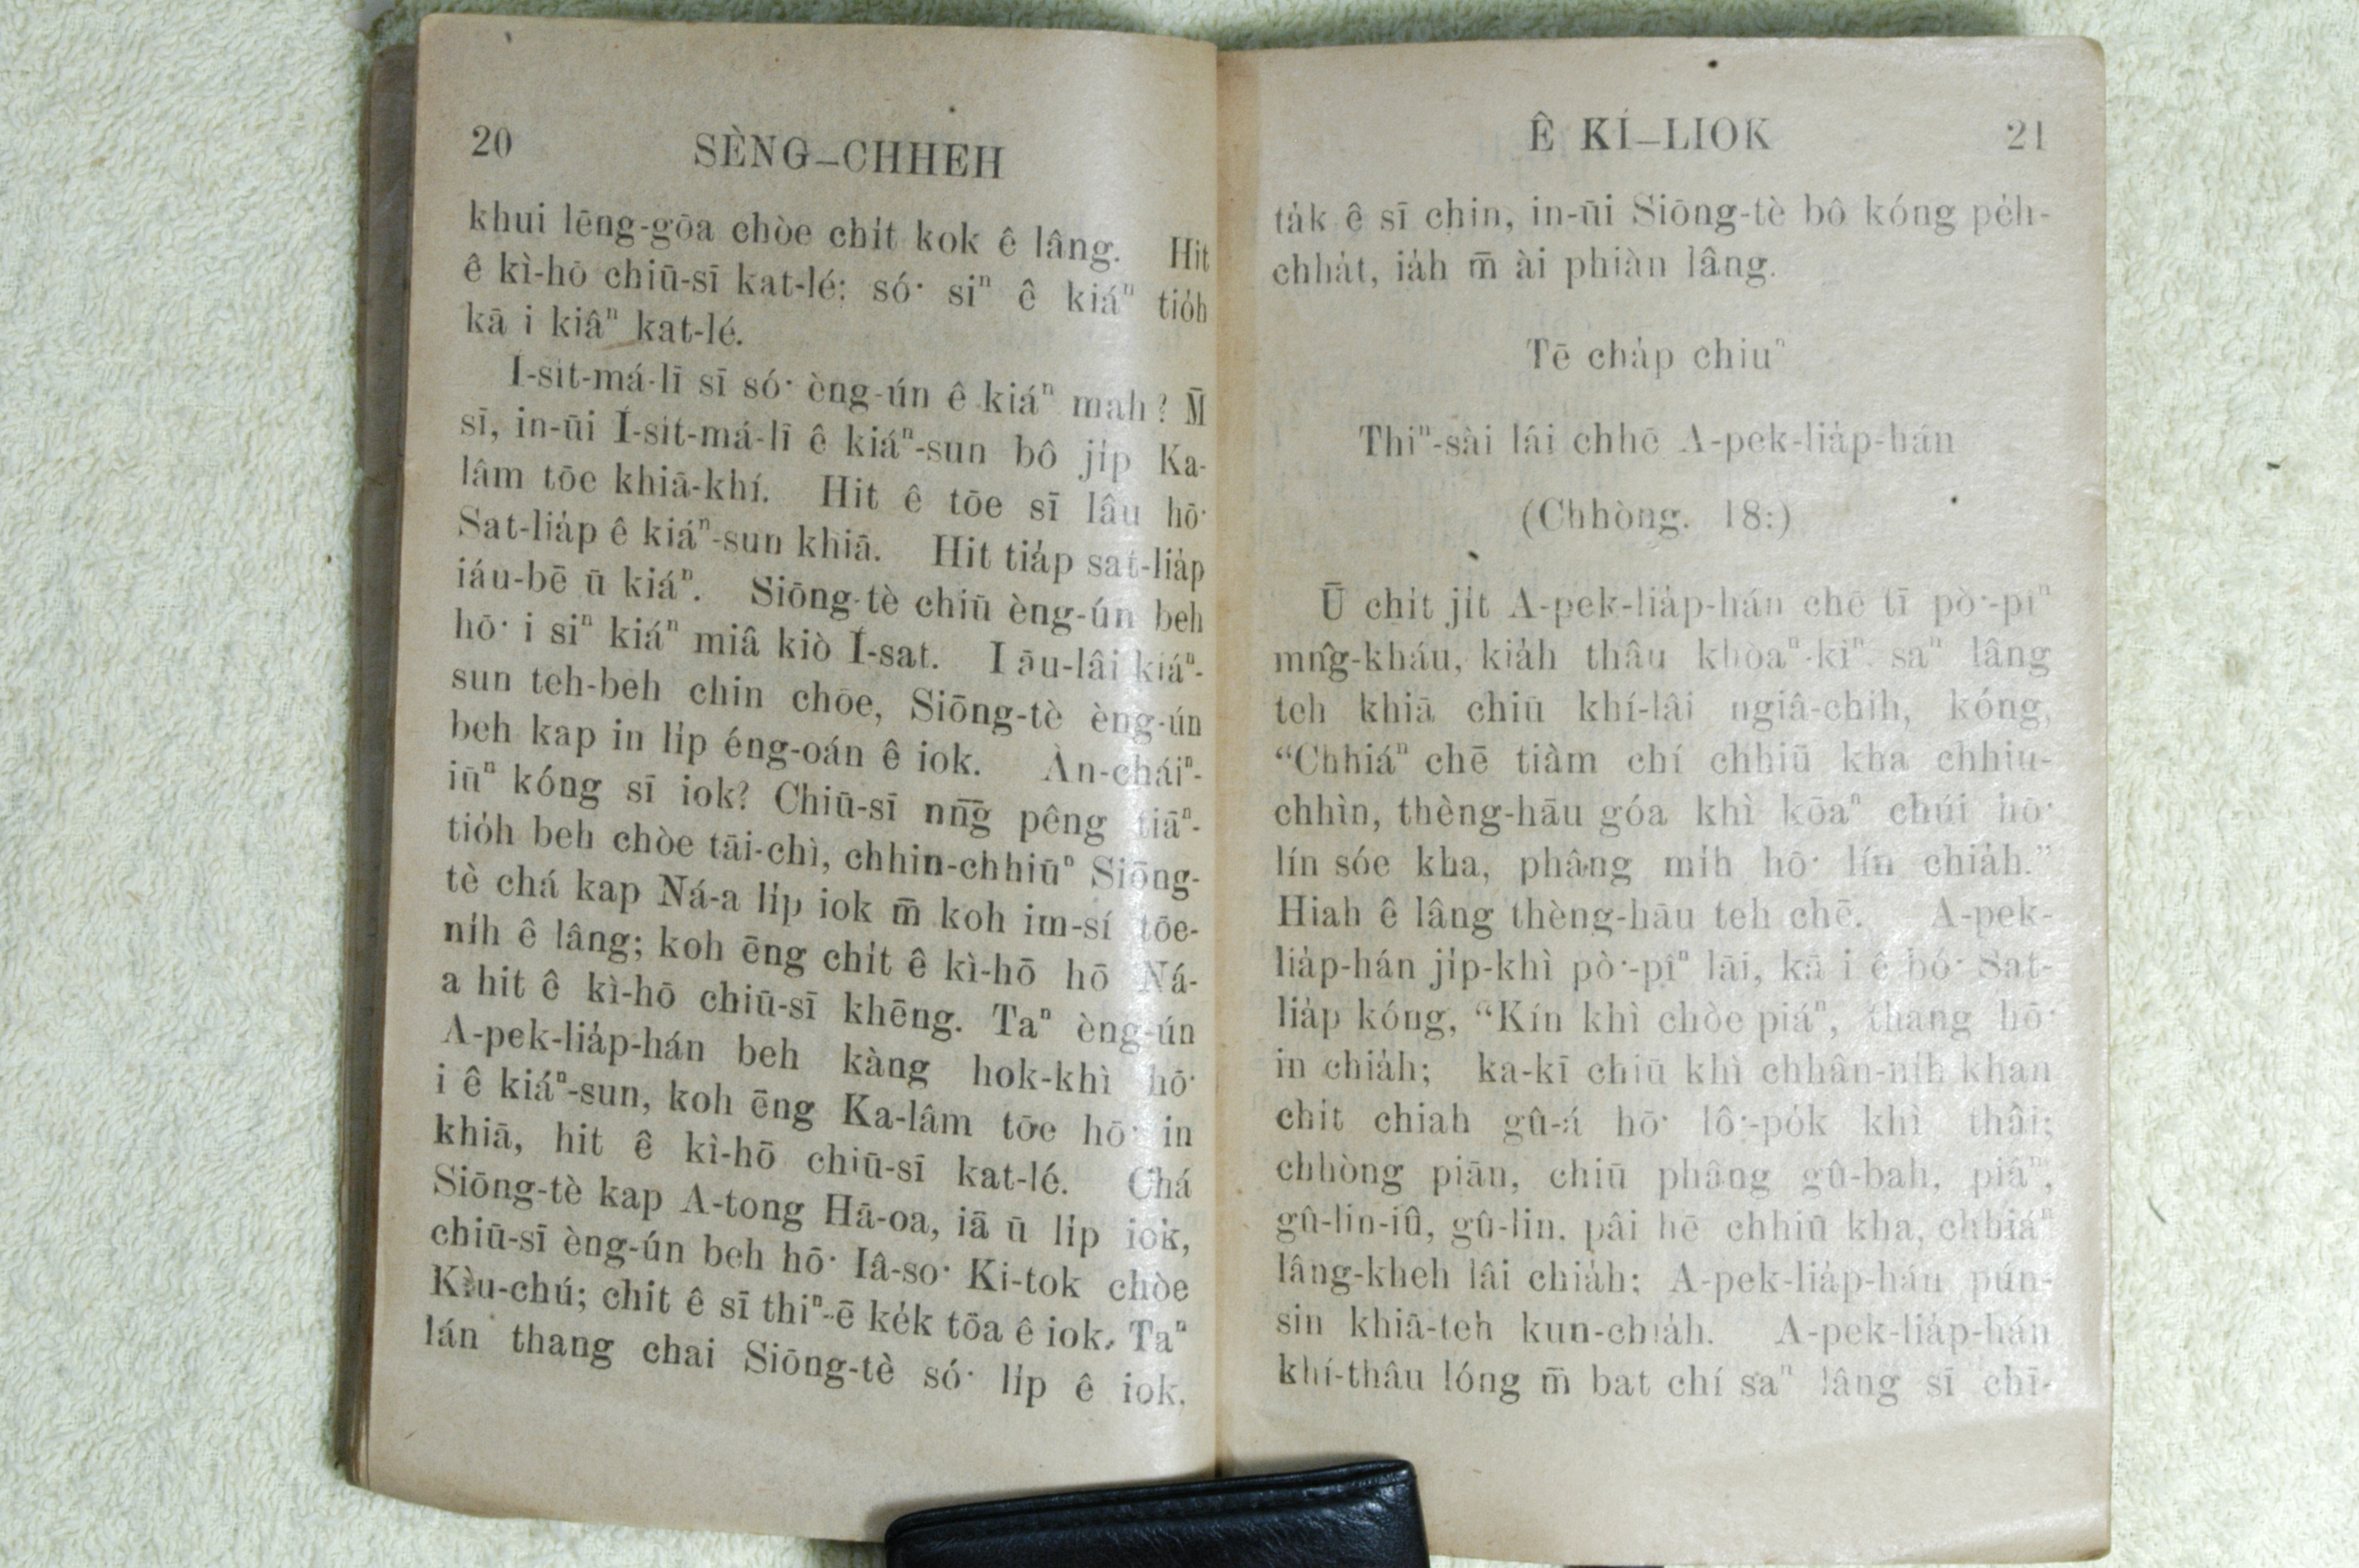 20 SÈNG–CHHEH
khui lēng-gōa chòe chi̍t kok ê lâng. Hit
ê kì-hō chiū-sī kat-lé; só͘ siⁿ ê kiáⁿ tio̍h
kā i kiâⁿ kat-lé.
Í-sit-má-lī sī só͘ èng-ún ê kiáⁿ mah? M̄
sī, in-ūi Í-sit-má-lī ê kiáⁿ-sun bô ji̍p Ka-
lâm tōe khiā-khí. Hit ê tōe sī lâu hō͘
Sat-lia̍p ê kiáⁿ-sun khiā. Hit tia̍p sat-lia̍p
iáu-bē ū kiáⁿ. Siōng-tè chiū èng-ún beh
hō͘ i siⁿ kiáⁿ miâ kiò Í-sat. I āu-lâi kiáⁿ-
sun teh-beh chin chōe, Siōng-tè èng-ún
beh kap in li̍p éng-oán ê iok. Àn-cháiⁿ-
iūⁿ kóng sī iok? Chiū-sī nn̄g pêng tiāⁿ-
tio̍h beh chòe tāi-chì, chhin-chhiūⁿ Siōng-
tè chá kap Ná-a li̍p iok m̄ koh im-sí tōe-
ni̍h ê lâng; koh ēng chi̍t ê kì-hō hō Ná-
a hit ê kì-hō chiū-sī khēng. Taⁿ èng-ún
A-pek-lia̍p-hán beh kàng hok-khì hō͘
i ê kiáⁿ-sun, koh ēng Ka-lâm tōe hō͘ in
khiā, hit ê kì-hō chiū-sī kat-lé. Chá
Siōng-tè kap A-tong Hā-oa, iā ū li̍p iok,
chiū-sī èng-ún beh hō͘ Iâ-so͘ Ki-tok chòe
Kìu-chú; chit ê sī thiⁿ-ē ke̍k tōa ê iok. Taⁿ
lán thang chai Siōng-tè só͘ li̍p ê iok,
Ê KÍ–LIOK 21
ta̍k ê sī chin, in-ūi Siōng-tè bô kóng pe̍h-
chha̍t, ia̍h m̄ ài phiàn lâng.
Tē cha̍p chiuⁿ
Thiⁿ-sài lái chhē A-pek-lia̍p-hán
(Chhòng. 18:)
Ū chi̍t ji̍t A-pek-lia̍p-hán chē tī pò͘-pîⁿ
mn̂g-kháu, kia̍h thâu khòaⁿ-kìⁿ saⁿ lâng
teh khiā chiū khí-lâi ngiâ-chih, kóng,
“Chhiáⁿ chē tiàm chí chhiū kha chhiu-
chhìn, thèng-hāu góa khì kōaⁿ chúi hō͘
lín sóe kha, phâng mi̍h hō͘ lín chia̍h.”
Hiah ê lâng thèng-hāu teh chē. A-pek-
lia̍p-hán ji̍p-khì pò͘-pîⁿ lāi, kā i ê bó͘ Sat-
lia̍p kóng, “Kín khì chòe piáⁿ, thang hō͘
in chia̍h; ka-kī chiū khì chhân-ni̍h khan
chi̍t chiah gû-á hō͘ lô͘-po̍k khì thâi;
chhòng piān, chiū phâng gû-bah, piáⁿ,
gû-lin-iû, gû-lin, pâi hē chhiū kha, chhiáⁿ
lâng-kheh lâi chia̍h; A-pek-lia̍p-hán pún-
sin khiā-teh kun-chia̍h. A-pek-lia̍p-hán
khí-thâu lóng m̄ bat chí saⁿ lâng sī chī-